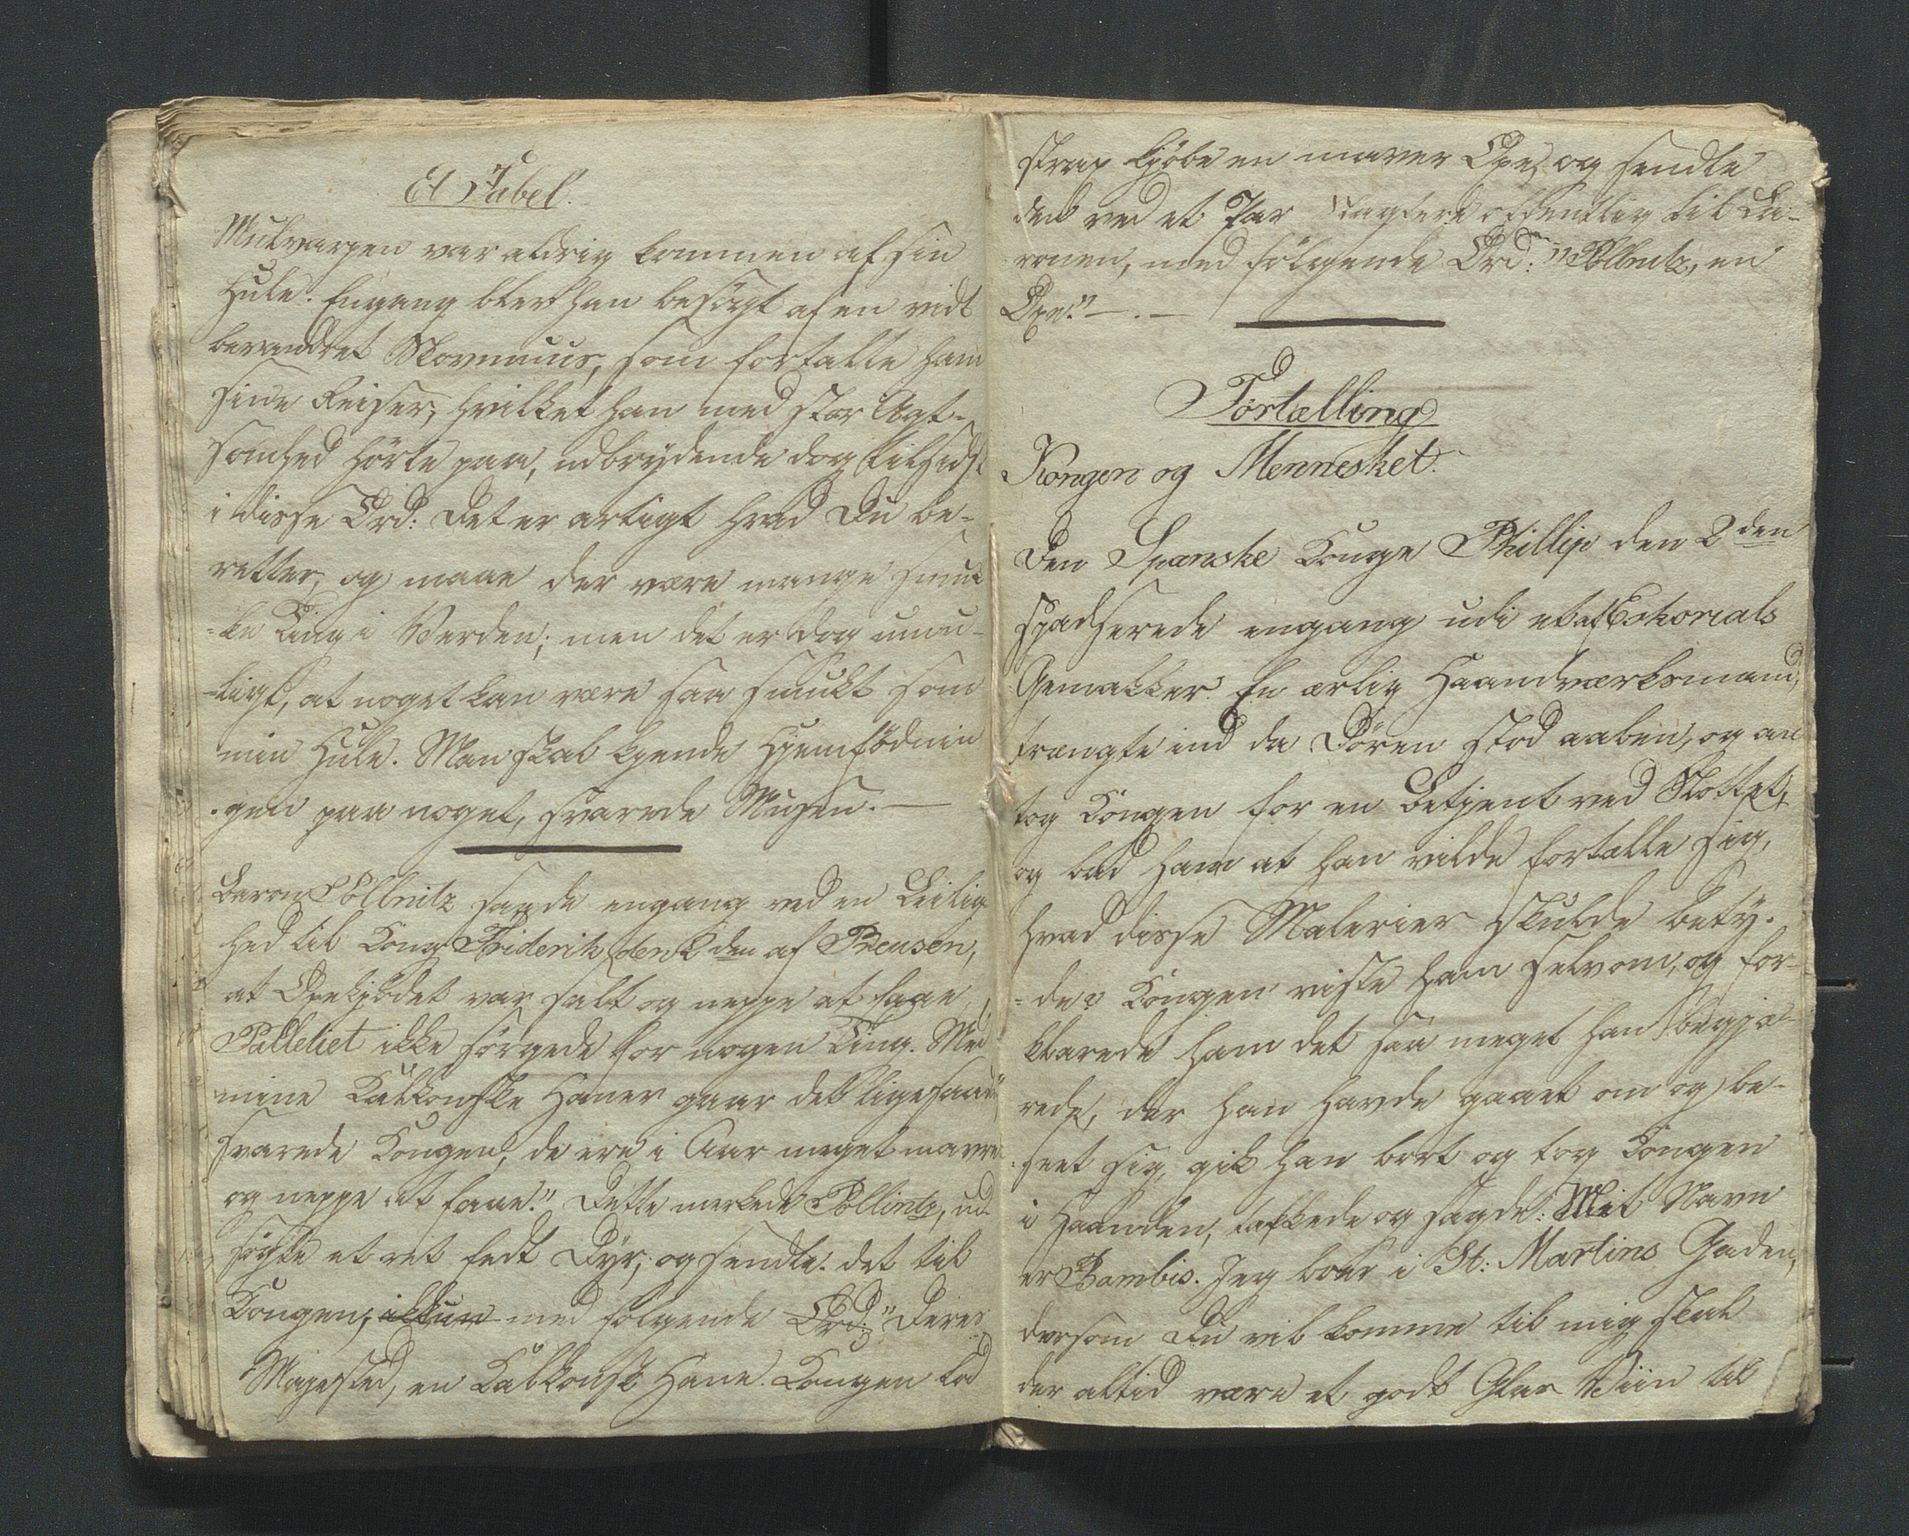 Et Fabel.
Mulvarpen var aldrig kommen af sin
Hule. Engang blev han besøgt af en vidt
bevandret Skovmuus, som fortalte ham
sine Reiser, hvilket han med stor Agt-
somhed hørte paa, udbrydende dog tilsidst
i disse Ord: Det er artigt hvad Du be-
retter, og maae der være mange smuk
-ke Ting i Verden; men det er dog umu-
-ligt, at noget kan være saa smukt som
min Hule. Man skal kjende Hjemfødnin
-gen paa noget, svarede Musen. —
Baron Pöllnitz sagde engang ved en Leilig
hed til Kong Friderik den 2den af Preusen,
at Oxekjødet var salt og neppe at faae,
Palleliet ikke sørgede for nogen Ting. Med
mine Kalkonske Haner gaar det ligesaadt
svarede Kongen, de ere i Aar meget mavre
og neppe at faae." Dette merkede Pöllintz, ud
søgte et ret fedt Dyr, og sendte det til
Kongen, ikkun med følgende Ord: "Deres
Majestæd, en Kalkonsk Hane. Kongen lod
strax kjøbe en maver Oxe, og sendte
den ved et Par Slagtere offentlig til Ba-
ronen, med følgende Ord: "Pöllnitz, en
Oxe." — . —
Fortælling
Kongen og Mennesket.
Den Spanske Konge Phillip den 2den
spadserede engang udi et af Eskorials
Gemakker. En ærlig Haandværksmand,
trængte ind da Døren stod aaben, og an
tog Kongen for en Betjent ved Slottet,
og bad ham at han vilde fortælle sig,
hvad disse Malerier skulde bety-
-de? Kongen viste ham selv om, og for-
klarede ham det saa meget han begjæ-
rede, der han havde gaaet om og be-
seet sig, gik han bort og tog Kongen
i Haanden, takkede og sagde: Mit Navn
er Bambis. Jeg boer i St: Martins Gaden,
dersom Du vil komme til mig skal
der altid være et godt Glas Viin til